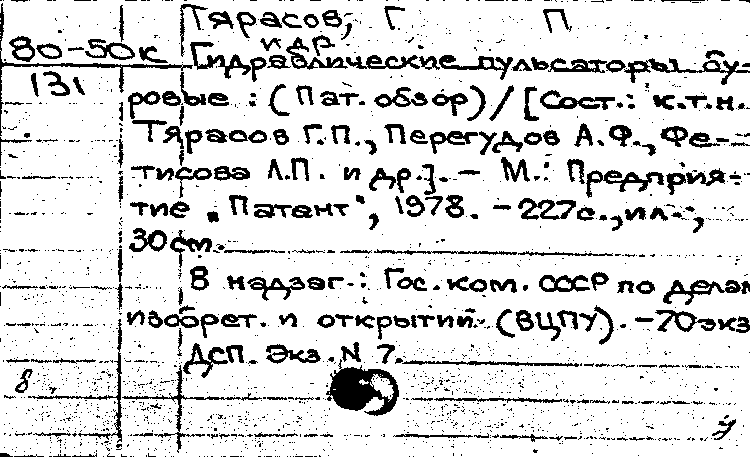 Тярасов, Г П
и др
80-50к Гидравлические пульсаторы бу-
131 ровые : (Пат. обзор) / [Сост.: к.т.н.
Тярасов Г.П., Перегудов А.Ф., Фе-
тисова Л.П. и др.]. - М.: Предприя-
тие "Патент", 1978. - 227с., ил.,
30см.
В надзаг.: Гос. ком. СССР по делам
изобрет. и открытий. (ВЦПУ). - 70экз
ДСП. Экз. N 7.
8.